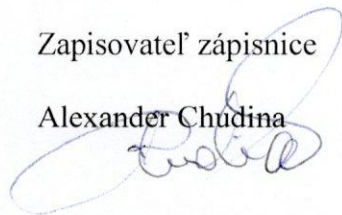 Zapisovateľ zápisnice
Alexander Chudina